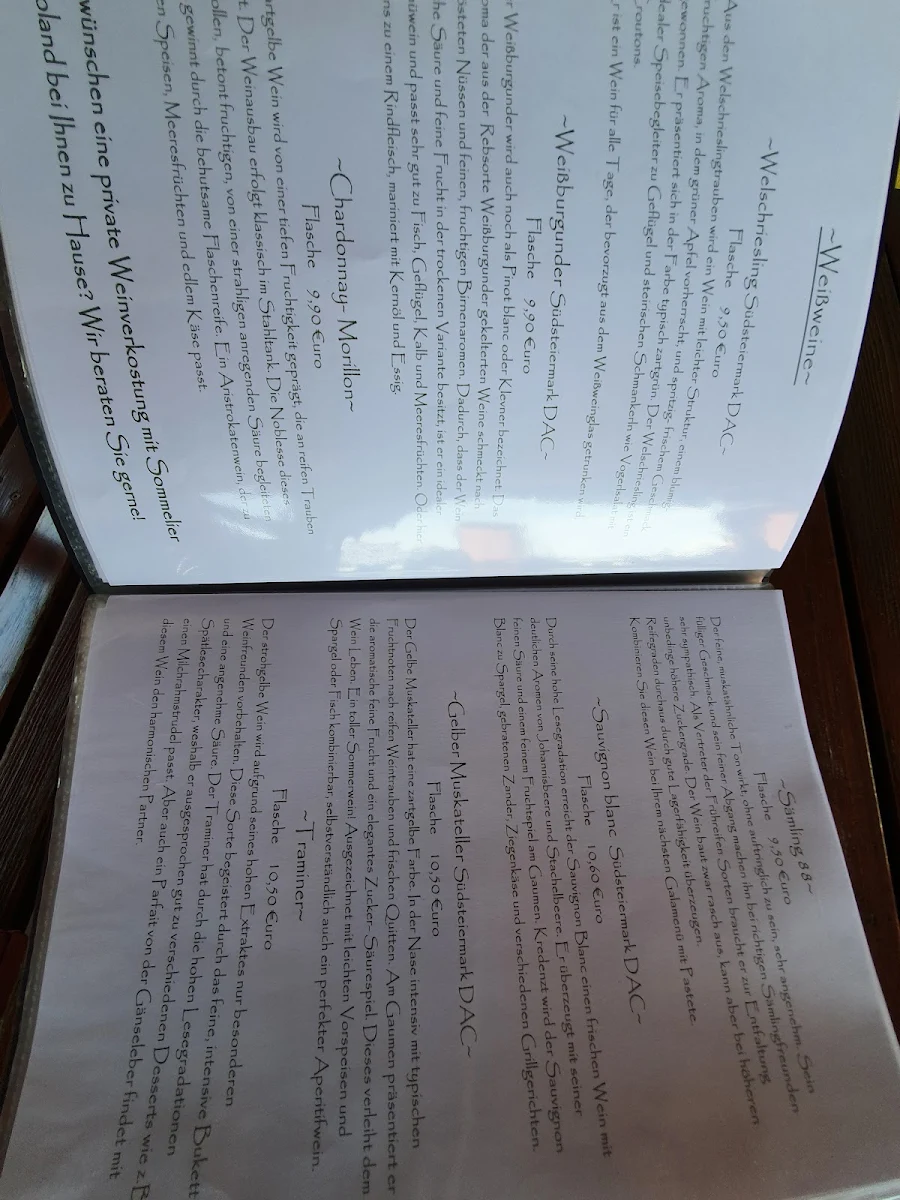 ~Weißweine~
~Welschriesling Südsteiermark DAC~
Flasche 9,50 €uro
Aus den Welschrieslingtrauben wird ein Wein mit leichter Struktur, einem blumig-
fruchtigen Aroma, in dem grüner Apfel vorherrscht, und spritzig-frischem Geschmack
gewonnen. Er präsentiert sich in der Farbe typisch zartgrün. Der Welschriesling ist ein
idealer Speisebegleiter zu Geflügel und steirischen Schmankerln wie Vogerlsalat mit
Croutons.
Er ist ein Wein für alle Tage, der bevorzugt aus dem Weißweinglas getrunken wird.
~Weißburgunder Südsteiermark DAC~
Flasche 9,90 €uro
r Weißburgunder wird auch noch als Pinot blanc oder Klevner bezeichnet. Das
oma der aus der Rebsorte Weißburgunder gekelterten Weine schmeckt nach
östeten Nüssen und feinen, fruchtigen Birnenaromen. Dadurch, dass der Wein
he Säure und feine Frucht in der trockenen Variante besitzt, ist er ein idealer
üwein und passt sehr gut zu Fisch, Geflügel, Kalb und Meeresfrüchten. Oder bei
ns zu einem Rindfleisch, mariniert mit Kernöl und Essig.
~Chardonnay- Morillon~
Flasche 9,90 €uro
artgelbe Wein wird von einer tiefen Fruchtigkeit geprägt, die an reifen Trauben
t. Der Weinausbau erfolgt klassisch im Stahltank. Die Noblesse dieses
ollen, betont fruchtigen, von einer strahligen anregenden Säure begleiteten
gewinnt durch die behutsame Flaschenreife. Ein Aristrokatenwein, der zu
en Speisen, Meeresfrüchten und edlem Käse passt.
wünschen eine private Weinverkostung mit Sommelier
oland bei Ihnen zu Hause? Wir beraten Sie gerne!
~Sämling 88~
Flasche 9,50 €uro
Der feine, muskatähnliche Ton wirkt, ohne aufdringlich zu sein, sehr angenehm. Sein
fülliger Geschmack und sein feiner Abgang machen ihn bei richtigen Sämlingfreunden
sehr sympathisch. Als Vertreter der Frühreifen Sorten braucht er zur Entfaltung
unbedingt höhere Zuckergrade. Der Wein baut zwar rasch aus, kann aber bei höheren
Reifegraden durchaus durch gute Lagerfähigkeit überzeugen.
Kombinieren Sie diesen Wein bei Ihrem nächsten Galamenü mit Pastete.
~Sauvignon blanc Südsteiermark DAC~
Flasche 10,60 €uro
Durch seine hohe Lesegradation erreicht der Sauvignon Blanc einen frischen Wein mit
deutlichen Aromen von Johannisbeere und Stachelbeere. Er überzeugt mit seiner
feinen Säure und einem feinem Fruchtspiel am Gaumen. Kredenzt wird der Sauvignon
Blanc zu Spargel, gebratenen Zander, Ziegenkäse und verschiedenen Grillgerichten.
~Gelber Muskateller Südsteiermark DAC~
Flasche 10,50 €uro
Der Gelbe Muskateller hat eine zartgelbe Farbe. In der Nase intensiv mit typischen
Fruchtnoten nach reifen Weintrauben und frischen Quitten. Am Gaumen präsentiert er
die aromatische feine Frucht und ein elegantes Zucker- Säurespiel. Dieses verleiht dem
Wein Leben. Ein toller Sommerwein! Ausgezeichnet mit leichten Vorspeisen und
Spargel oder Fisch kombinierbar, selbstverständlich auch ein perfekter Aperitifwein.
~Traminer~
Flasche 10,50 €uro
Der strohgelbe Wein wird aufgrund seines hohen Extraktes nur besonderen
Weinfreunden vorbehalten. Diese Sorte begeistert durch das feine, intensive Bukett
und eine angenehme Säure. Der Traminer hat durch die hohen Lesegradationen
Spätlesecharakter, weshalb er ausgesprochen gut zu verschiedenen Desserts wie z.B
einen Milchrahmstrudel passt. Aber auch ein Parfait von der Gänseleber findet mit
diesem Wein den harmonischen Partner.